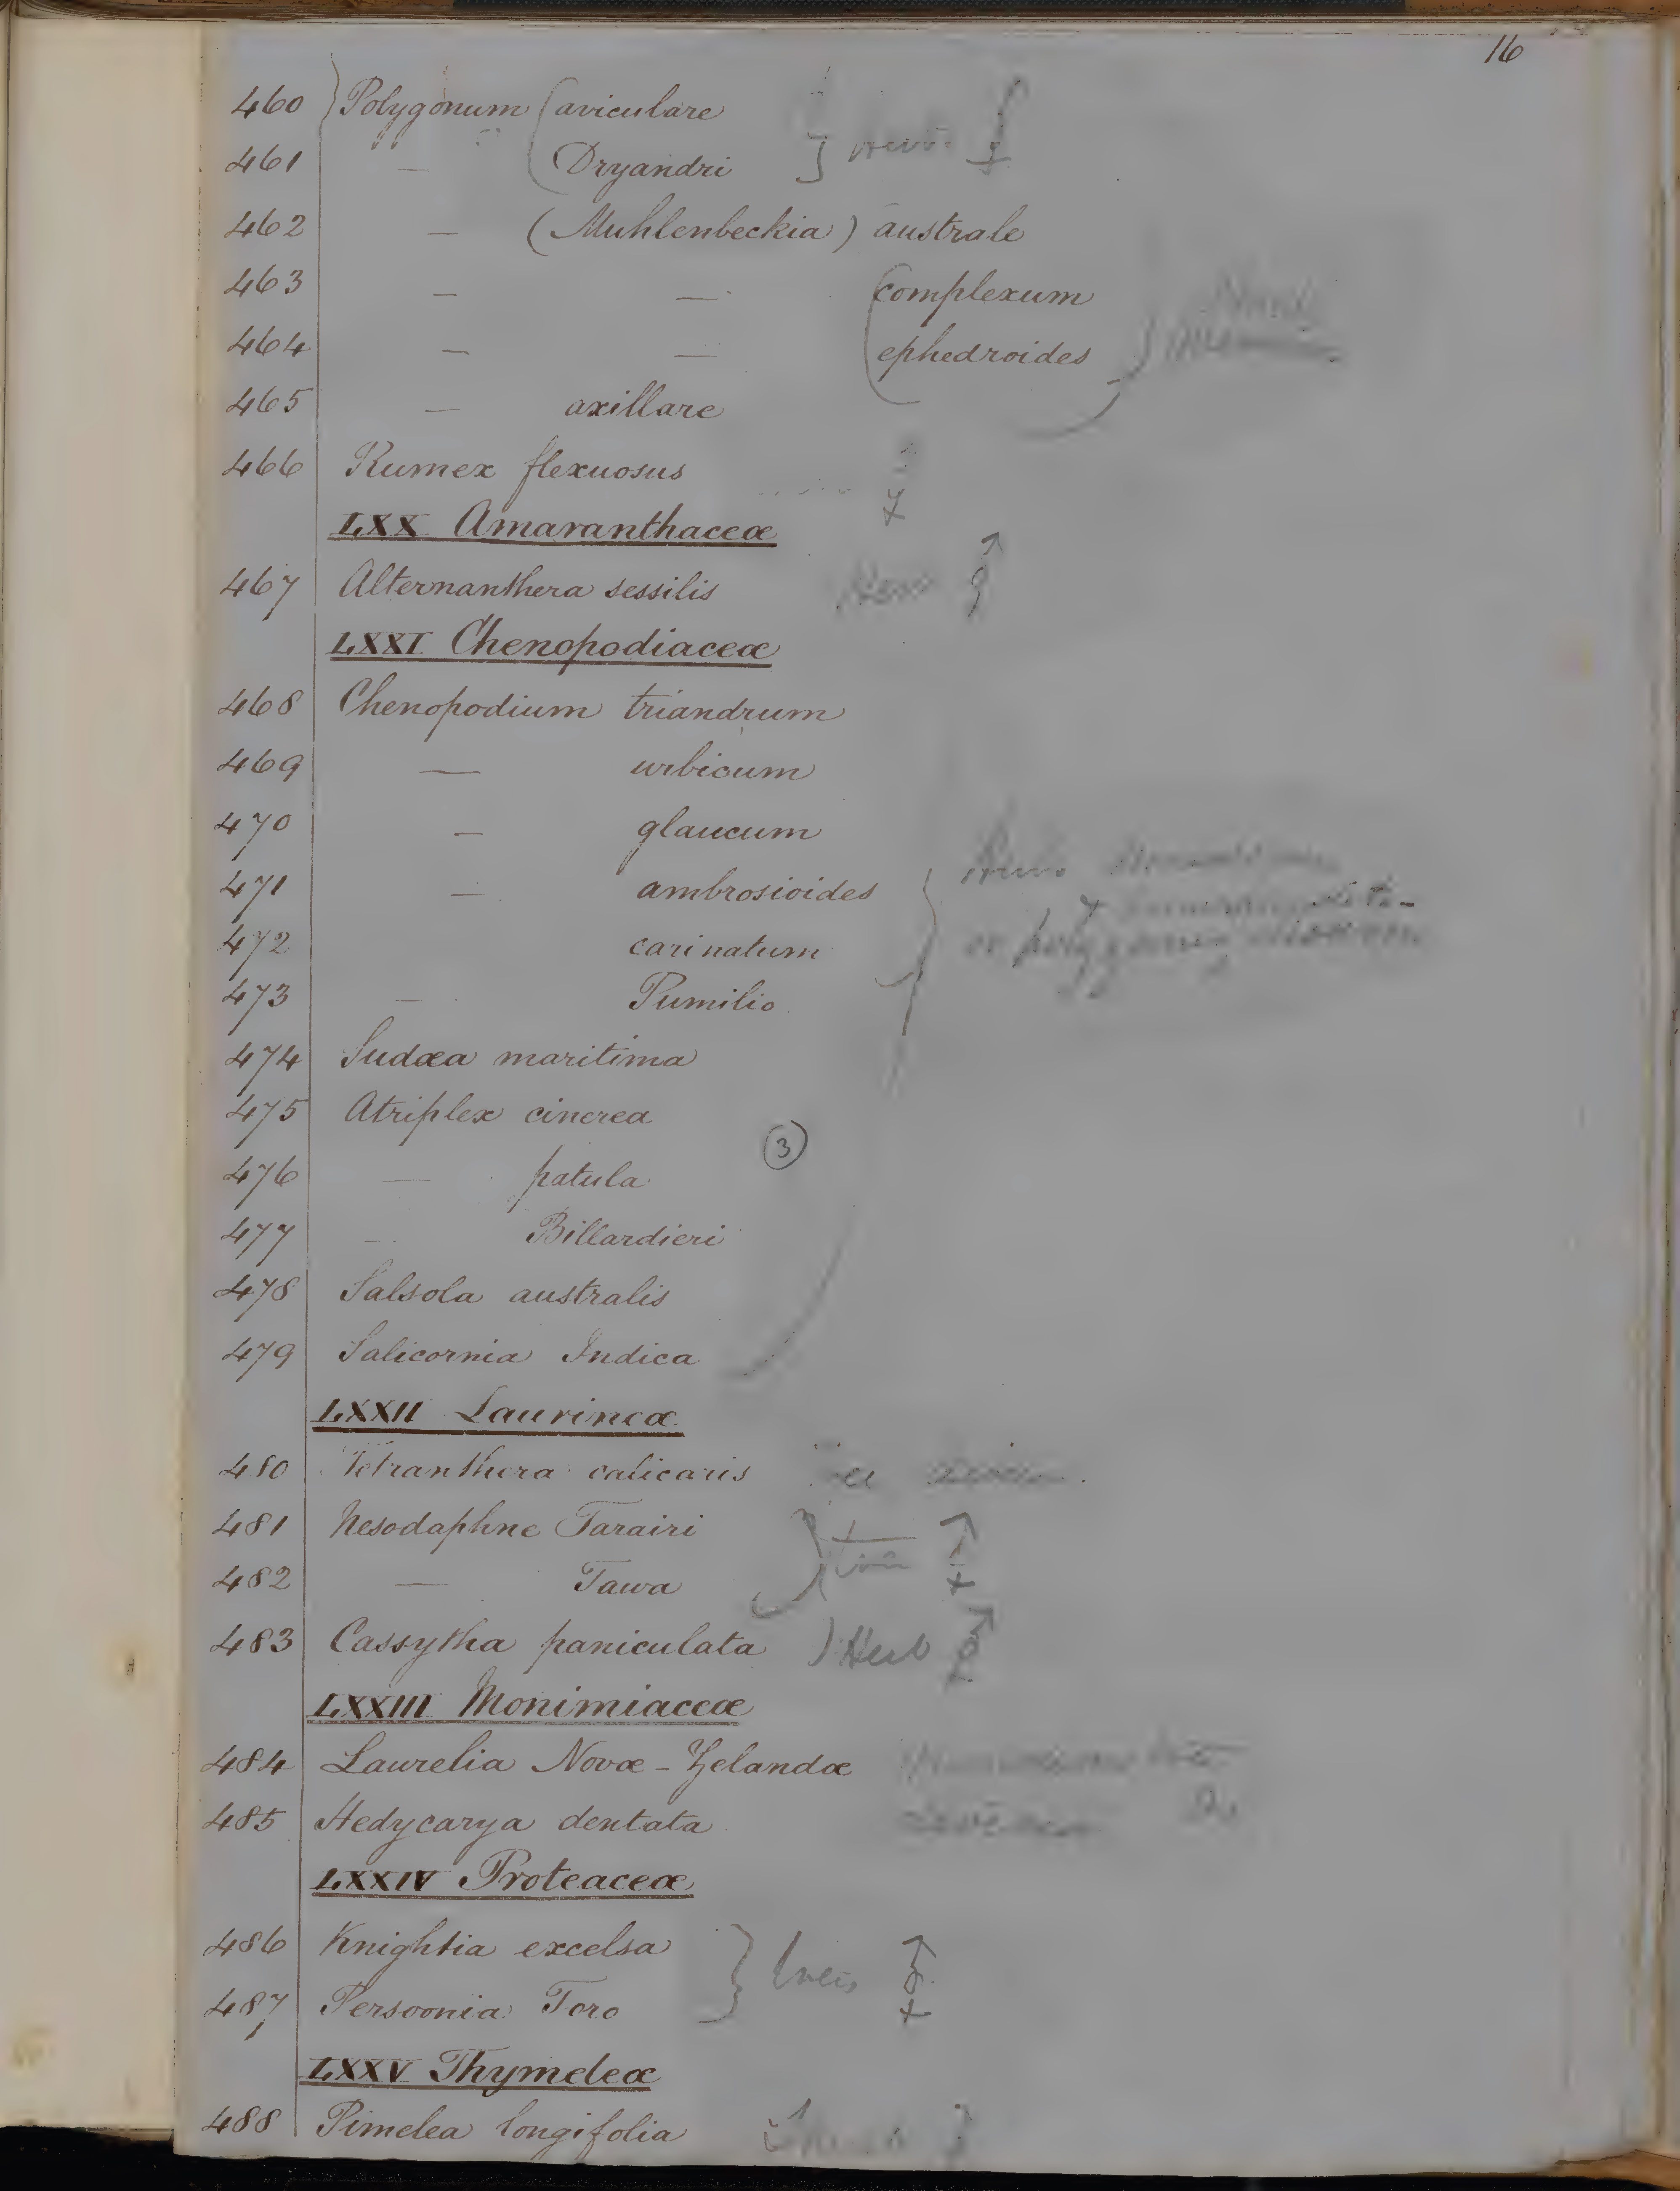 16
460 Polygonum aviculare
461 — Dryandri } Herb. ☿
462 — (Muhlenbeckia) australe
463 — — complexum
464 — — ephedroides
465 — axillare
466 Rumex flexuosus
LXX Amaranthaceæ
467 Alternanthera sessilis
LXXI Chenopodiaceæ
468 Chenopodium triandrum
469 — urbicum
470 — glaucum
471 — ambrosioides
472 carinatum
473 — Pumilio
474 Sudæa maritima
475 Atriplex cinerea
3
476 — patula
477 — Billardieri
478 Salsola australis
479 Salicornia Indica
LXXII Laurineæ
480 Tetranthera calicaris
481 Nesodaphne Tarairi
482 — Tawa
483 Cassytha paniculata ) Herb
LXXIII Monimiaceæ
484 Laurelia Novæ-Zelandæ
485 Hedycarya dentata
LXXIV Proteaceæ
486 Knightia excelsa
487 Persoonia Toro
LXXV Thymeleæ
488 Pimelea longifolia